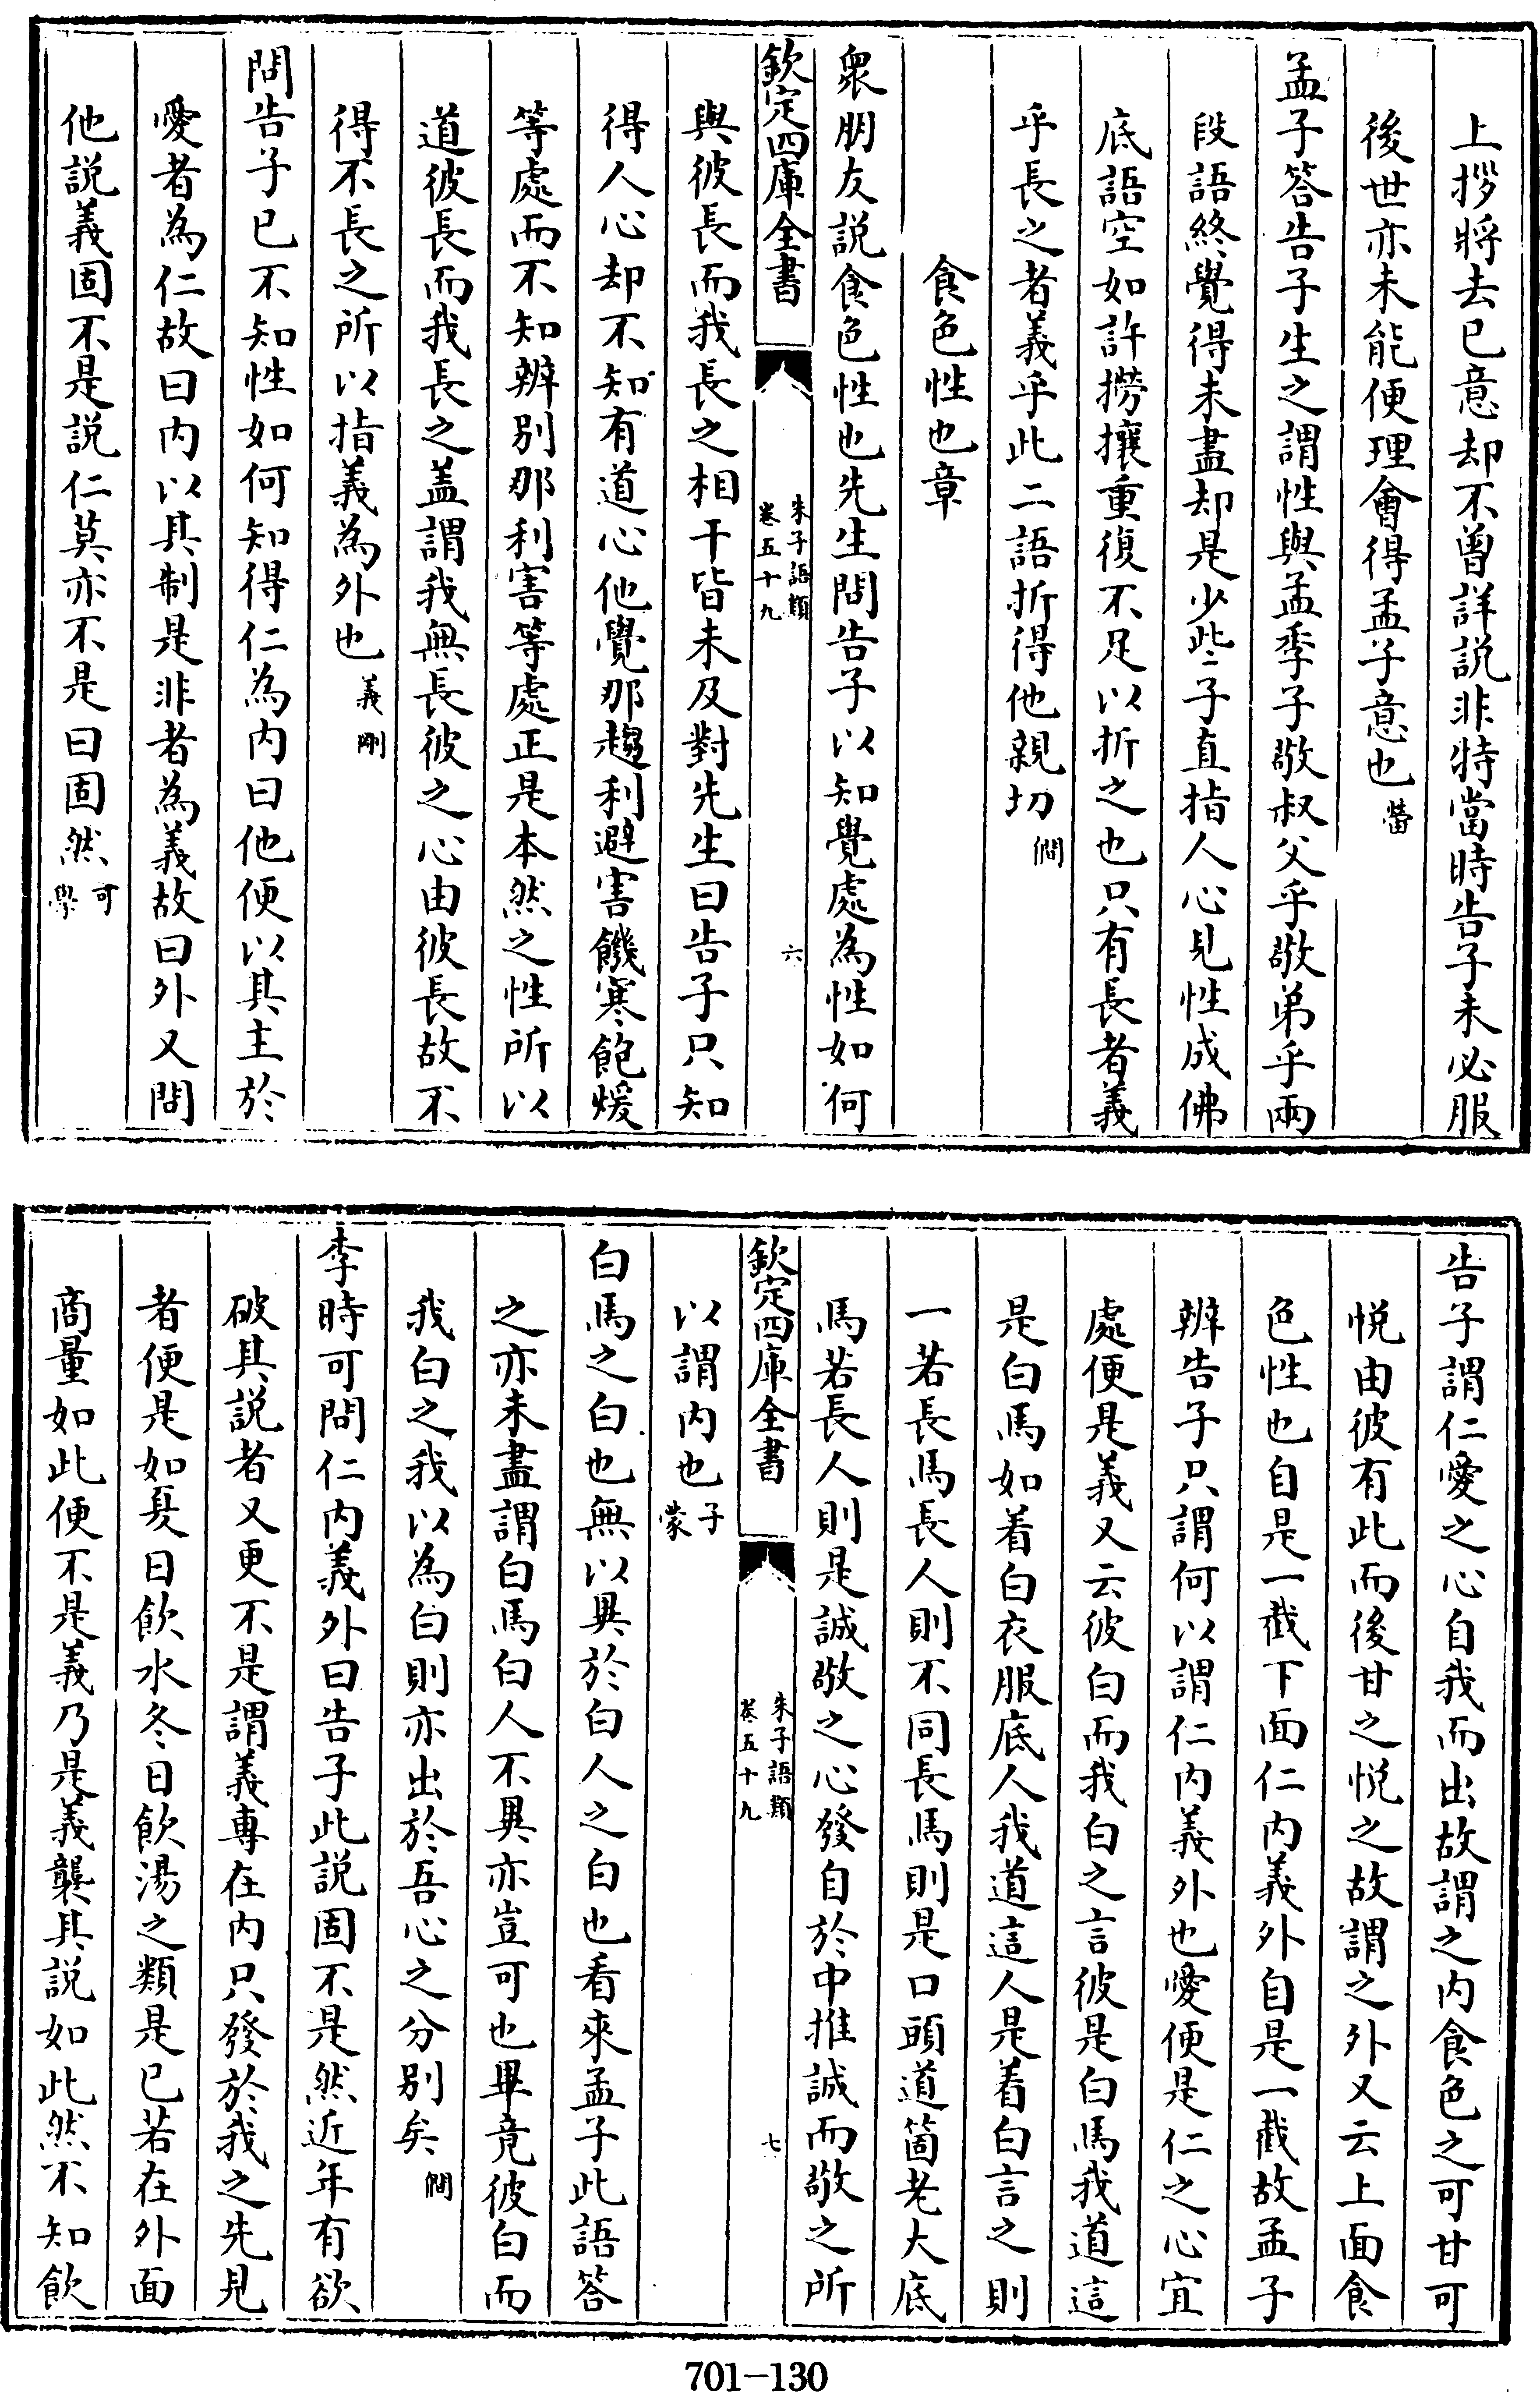 上拶將去已意却不曽詳説非特當時告子未必服
後世亦未能便理會得孟子意也㽦
孟子答告子生之謂性與孟季子敬叔父乎敬弟乎兩
段語終覺得未盡却是少些子直指人心見性成佛
底語空如許撈攘重復不足以折之也只有長者義
乎長之者義乎此二語折得他親切僩
食色性也章
衆朋友説食色性也先生問告子以知覺處為性如何
欽定四庫全書
朱子語類
卷五十九
六
與彼長而我長之相干皆未及對先生曰告子只知
得人心却不知有道心他覺那趨利避害饑寒飽煖
等處而不知辨别那利害等處正是本然之性所以
道彼長而我長之盖謂我無長彼之心由彼長故不
得不長之所以指義為外也義剛
問告子已不知性如何知得仁為内曰他便以其主於
愛者為仁故曰内以其制是非者為義故曰外又問
他説義固不是説仁莫亦不是曰固然可學
告子謂仁愛之心自我而出故謂之内食色之可甘可
悦由彼有此而後甘之悦之故謂之外又云上面食
色性也自是一截下面仁内義外自是一截故孟子
辨告子只謂何以謂仁内義外也愛便是仁之心宜
處便是義又云彼白而我白之言彼是白馬我道這
是白馬如着白衣服底人我道這人是着白言之則
一若長馬長人則不同長馬則是口頭道箇老大底
馬若長人則是誠敬之心發自於中推誠而敬之所
欽定四庫全書
朱子語類
卷五十九
七
以謂内也子蒙
白馬之白也無以異於白人之白也看來孟子此語答
之亦未盡謂白馬白人不異亦豈可也畢竟彼白而
我白之我以為白則亦出於吾心之分别矣僩
李時可問仁内義外曰告子此説固不是然近年有欲
破其説者又更不是謂義專在内只發於我之先見
者便是如夏日飲水冬日飲湯之類是已若在外面
商量如此便不是義乃是義襲其説如此然不知飲
701-130